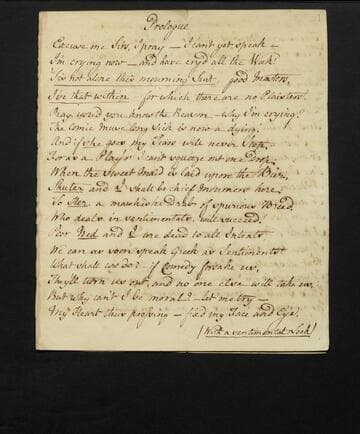 Prologue
Excuse me Sirs, I pray — I can't yet speak —
I'm crying now — and have cry'd all the Week!
'Tis not alone this mourning Suit, good masters,
I've that within for which there are no Plaisters!
Pray wou'd you know the Reason why I'm crying?
The Comic muse long Sick is now a dying.
And if she goes my Tears will never Stop,
For as a Play'r I cant squeeze out one Drop
When the Sweet Maid is laid upon the Bier,
Shuter and I shall be chief mourners here.
To Her a mawkish Drab of spurious Breed
Who deals in sentimentals, will succeed!
Poor Ned and I are dead to all Intents
We can as soon speak Greek as Sentiments
What shall we do? — if Comedy forsake us,
They'll turn us out, and no one else will take us.
But why can't I be moral? — let me try —
My Heart thus pressing — fix'd my Face and Eye.
(With a sentimental Look)